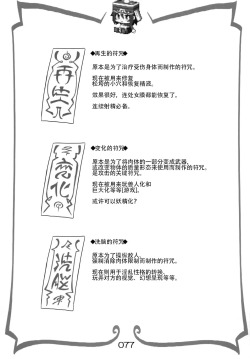 ◆再生的符咒◆
原本是为了治疗受伤身体而制作的符咒。
现在被用来修复
松垮的小穴和恢复精液。
效果很好，连处女膜都能恢复了。
连续射精必备。
再生
◆变化的符咒◆
原本是为了将肉体的一部分变成武器，
或改变物体的质量形态来使用而制作的符咒。
是攻击的关键符咒。
现在被用来玩兽人化和
巨大化等等[游戏]。
或许可以妖精化?
变化
◆洗脑的符咒◆
原本为了操纵敌人，
强制消除肉体限制而制作的符咒。
现在则用于淫乱性格的转换、
玩弄对方的视觉、幻想显现等等。
洗脳
077